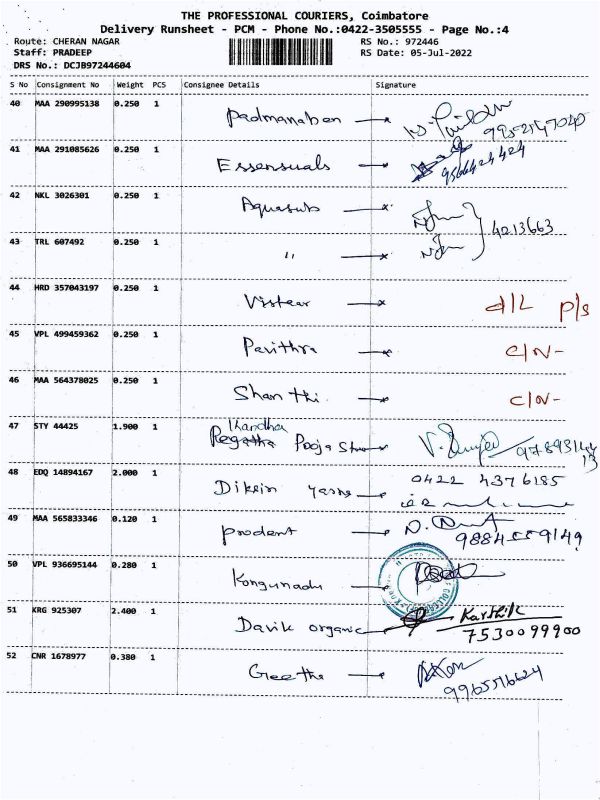 THE PROFESSIONAL COURIERS, Coimbatore
Delivery Runsheet - PCM - Phone No.:0422-3505555 - Page No.:4
Route: CHERAN NAGAR RS No.: 972446
Staff: PRADEEP RS Date: 05-Jul-2022
DRS No.: DCJB97244604
S No Consignment No Weight PCS Consignee Details Signature
40 MAA 290995138 0.250 1 Padmanaben 9952147040
41 MAA 291085626 0.250 1 Essensuals 9566424424
42 NKL 3026301 0.250 1 Aquasub 4213663
43 TRL 607492 0.250 1 "
44 HRD 357043197 0.250 1 d/L P/s
45 VPL 499459362 0.250 1 Pavithra C/N-
46 MAA 564378025 0.250 1 Shanthi C/N-
47 STY 44425 1.900 1 Pooja
48 EDQ 14894167 2.000 1 0422 4376185
49 MAA 565833346 0.120 1 prodent
50 VPL 936695144 0.280 1 Kongunadu
51 KRG 925307 2.400 1 Davik organic Karthik
7530099900
52 CNR 1678977 0.380 1 Geetha